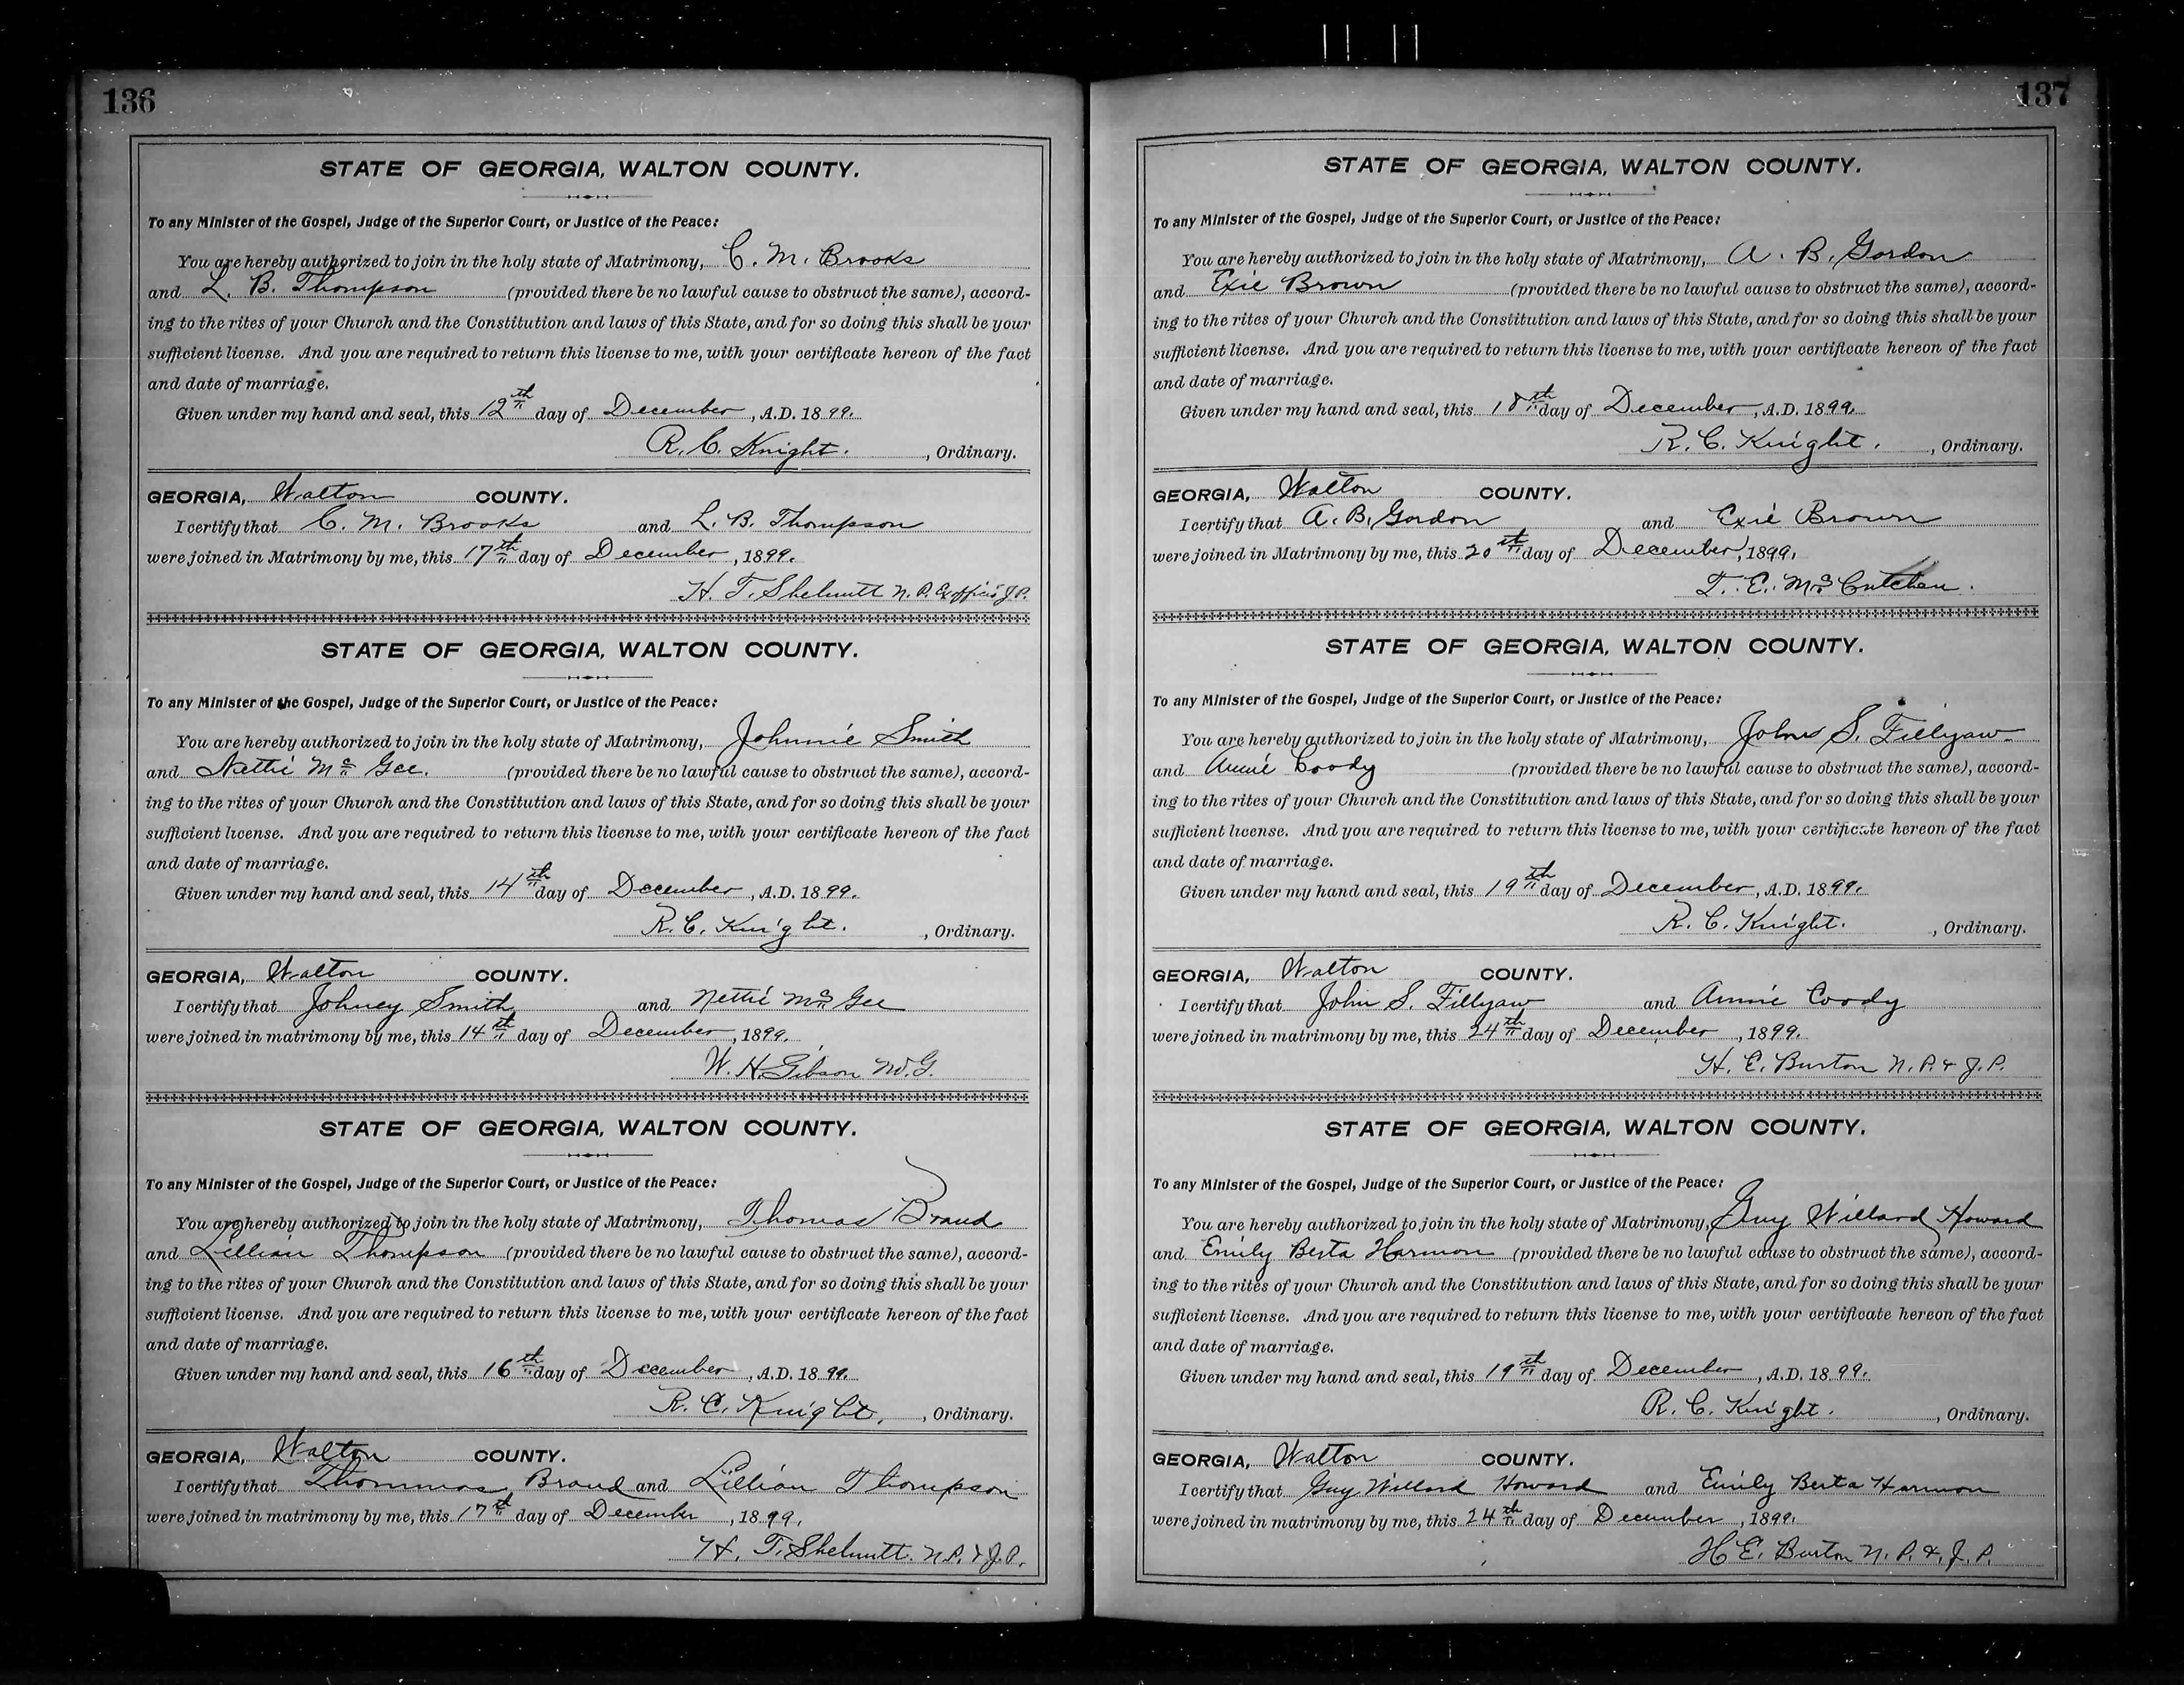 136
STATE OF GEORGIA, WALTON COUNTY.
To any Minister of the Gospel, Judge of the Superior Court, or Justice of the Peace:
You are hereby authorized to join in the holy state of Matrimony, C. M. Brooks
and L. B. Thompson (provided there be no lawful cause to obstruct the same), accord-
ing to the rites of your Church and the Constitution and laws of this State, and for so doing this shall be your
sufficient license. And you are required to return this license to me, with your certificate hereon of the fact
and date of marriage.
Given under my hand and seal, this 12th day of December, A.D. 1899.
R. C. Knight. , Ordinary.
GEORGIA, Walton COUNTY.
I certify that C. M. Brooks and L. B. Thompson
were joined in Matrimony by me, this 17th day of December, 1899.
H. T. Shelnutt N. P. Exofficio J.P.
STATE OF GEORGIA, WALTON COUNTY.
To any Minister of the Gospel, Judge of the Superior Court, or Justice of the Peace:
You are hereby authorized to join in the holy state of Matrimony, Johnnie Smith
and Nettie Mc Gee. (provided there be no lawful cause to obstruct the same), accord-
ing to the rites of your Church and the Constitution and laws of this State, and for so doing this shall be your
sufficient license. And you are required to return this license to me, with your certificate hereon of the fact
and date of marriage.
Given under my hand and seal, this 14th day of December, A.D. 1899.
R. C. Knight. , Ordinary.
GEORGIA, Walton COUNTY.
I certify that Johney Smith and Nettie Mc Gee
were joined in matrimony by me, this 14th day of December, 1899.
W. H. Gibson M.G.
STATE OF GEORGIA, WALTON COUNTY.
To any Minister of the Gospel, Judge of the Superior Court, or Justice of the Peace:
You are hereby authorized to join in the holy state of Matrimony, Thomas Brand
and Lillian Thompson (provided there be no lawful cause to obstruct the same), accord-
ing to the rites of your Church and the Constitution and laws of this State, and for so doing this shall be your
sufficient license. And you are required to return this license to me, with your certificate hereon of the fact
and date of marriage.
Given under my hand and seal, this 16th day of December, A.D. 1899.
R. C. Knight. , Ordinary.
GEORGIA, Walton COUNTY.
I certify that Thommas Brand and Lillian Thompson
were joined in matrimony by me, this 17th day of December, 1899.
H. T. Shelnutt. N.P. & J.P.
137
STATE OF GEORGIA, WALTON COUNTY.
To any Minister of the Gospel, Judge of the Superior Court, or Justice of the Peace:
You are hereby authorized to join in the holy state of Matrimony, A. B. Gordon
and Exie Brown (provided there be no lawful cause to obstruct the same), accord-
ing to the rites of your Church and the Constitution and laws of this State, and for so doing this shall be your
sufficient license. And you are required to return this license to me, with your certificate hereon of the fact
and date of marriage.
Given under my hand and seal, this 18th day of December, A.D. 1899.
R. C. Knight. , Ordinary.
GEORGIA, Walton COUNTY.
I certify that A. B. Gordon and Exie Brown
were joined in Matrimony by me, this 20th day of December, 1899.
T. E. Mc Cutchen.
STATE OF GEORGIA, WALTON COUNTY.
To any Minister of the Gospel, Judge of the Superior Court, or Justice of the Peace:
You are hereby authorized to join in the holy state of Matrimony, John S. Fillyaw
and Annie Coody (provided there be no lawful cause to obstruct the same), accord-
ing to the rites of your Church and the Constitution and laws of this State, and for so doing this shall be your
sufficient license. And you are required to return this license to me, with your certificate hereon of the fact
and date of marriage.
Given under my hand and seal, this 19th day of December, A.D. 1899.
R. C. Knight. , Ordinary.
GEORGIA, Walton COUNTY.
I certify that John S. Fillyaw and Annie Coody
were joined in matrimony by me, this 24th day of December, 1899.
H. E. Burton N. P. & J. P.
STATE OF GEORGIA, WALTON COUNTY.
To any Minister of the Gospel, Judge of the Superior Court, or Justice of the Peace:
You are hereby authorized to join in the holy state of Matrimony, Guy Willard Howard
and Emily Berta Harmon (provided there be no lawful cause to obstruct the same), accord-
ing to the rites of your Church and the Constitution and laws of this State, and for so doing this shall be your
sufficient license. And you are required to return this license to me, with your certificate hereon of the fact
and date of marriage.
Given under my hand and seal, this 19th day of December, A.D. 1899.
R. C. Knight. , Ordinary.
GEORGIA, Walton COUNTY.
I certify that Guy Willard Howard and Emily Berta Harmon
were joined in matrimony by me, this 24th day of December, 1899.
H E. Burton N. P. &. J. P.